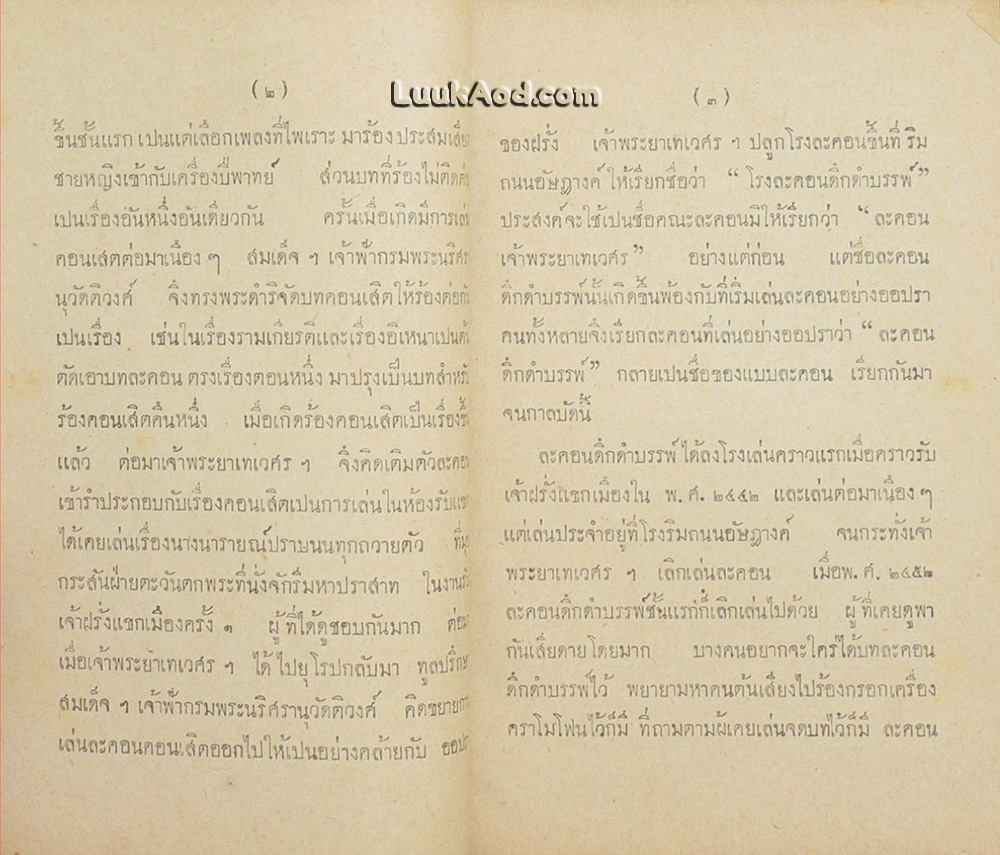 LuukAod.com
( ๒ )
ขึ้นชั้นแรก เปนแต่เลือกเพลงที่ไพเราะ มาร้อง ประสมเสีย
ชายหญิงเข้ากับเครื่องปี่พาทย์ ส่วนบทที่ร้องไม่ติดต่
เปนเรื่องอันหนึ่งอันเดียวกัน ครั้นเมื่อเกิดมีการเล่
คอนเสิตต่อมาเนือง ๆ สมเด็จ ฯ เจ้าฟ้ากรมพระนริศร
นุวัดติวงศ์ จึ่งทรงพระดำริจัดบทคอนเสิตให้ร้องต่อกั
เปนเรื่อง เช่นในเรื่องรามเกียรติและเรื่องอิเหนาเปนต้
ตัดเอาบทละคอน ตรงเรื่องตอนหนึ่ง มาปรุงเป็นบทสำหรั
ร้องคอนเสิตคืนหนึ่ง เมื่อเกิดร้องคอนเสิตเป็นเรื่องขึ้
แล้ว ต่อมาเจ้าพระยาเทเวศร ฯ จึ่งคิดเติมตัวละคอ
เข้ารำประกอบกับเรื่องคอนเสิตเปนการเล่นในห้องรับแข
ได้เคยเล่นเรื่องนางนารายณ์ปราบนนทุกถวายตัว ที่มุ
กระสันฝ่ายตะวันตกพระที่นั่งจักรีมหาปราสาท ในงานรั
เจ้าฝรั่งแขกเมืองครั้ง ๑ ผู้ที่ได้ดูชอบกันมาก ต่อม
เมื่อเจ้าพระยาเทเวศร ฯ ได้ไปยุโรปกลับมา ทูลปรึกษ
สมเด็จ ฯ เจ้าฟ้ากรมพระนริศรานุวัดติวงศ์ คิดขยายกา
เล่นละคอนคอนเสิตออกไปให้เปนอย่างคล้ายกับ ออปร
( ๓ )
ของฝรั่ง เจ้าพระยาเทเวศร ฯ ปลูกโรงละคอนขึ้นที่ ริม
ถนนอัษฎางค์ ให้เรียกชื่อว่า “ โรงละคอนดึกดำบรรพ์ ”
ประสงค์จะใช้เปนชื่อคณะละคอนมิให้เรียกว่า “ ละคอน
เจ้าพระยาเทเวศร ” อย่างแต่ก่อน แต่ชื่อละคอน
ดึกดำบรรพ์นั้นเกิดขึ้นพ้องกับที่เริ่มเล่นละคอนอย่างออปรา
คนทั้งหลายจึ่งเรียกละคอนที่เล่นอย่างออปราว่า “ ละคอน
ดึกดำบรรพ์ ” กลายเปนชื่อของแบบละคอน เรียกกันมา
จนกาลบัดนี้
ละคอนดึกดำบรรพ์ ได้ลงโรงเล่นคราวแรกเมื่อคราวรับ
เจ้าฝรั่งแขกเมืองใน พ. ศ. ๒๔๔๒ และเล่นต่อมาเนือง ๆ
แต่เล่นประจำอยู่ที่โรงริมถนนอัษฎางค์ จนกระทั่งเจ้า
พระยาเทเวศร ฯ เลิกเล่นละคอน เมื่อพ. ศ. ๒๔๕๒
ละคอนดึกดำบรรพ์ชั้นแรกก็เลิกเล่นไปด้วย ผู้ที่เคยดูพา
กันเสียดายโดยมาก บางคนอยากจะใคร่ได้บทละคอน
ดึกดำบรรพ์ไว้ พยายามหาคนต้นเสียงไปร้องกรอกเครื่อง
คราโมโฟนไว้ก็มี ที่ถามตามผู้เคยเล่นจดบทไว้ก็มี ละคอน